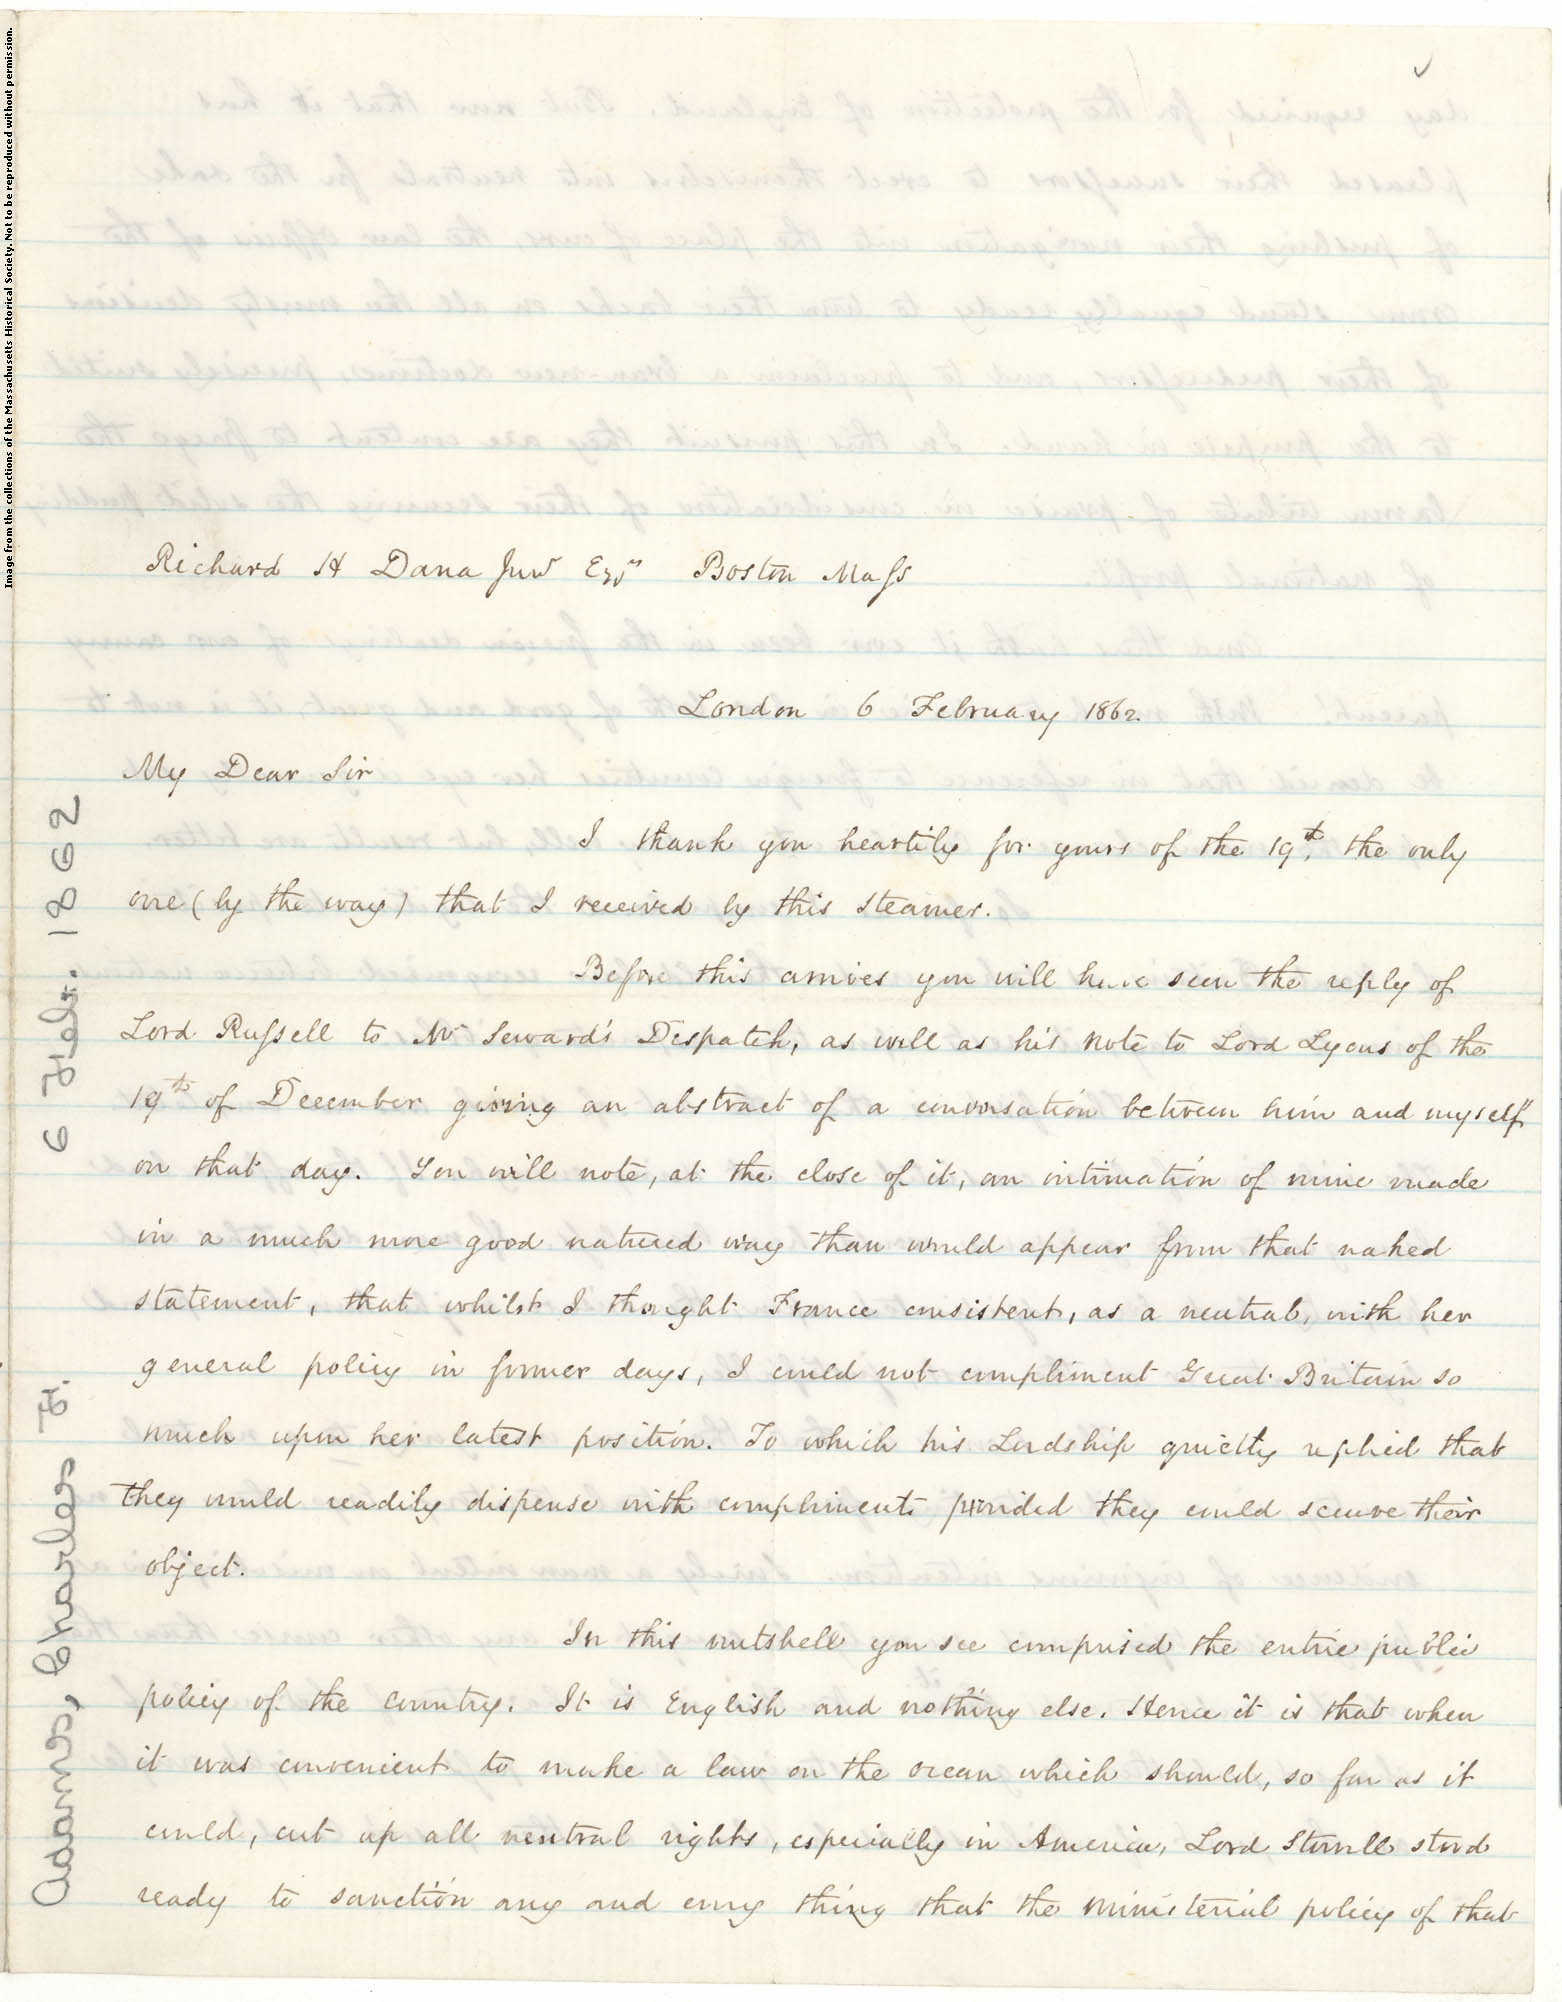 Richard H Dana Junr Esqr Boston Mass
London 6 February 1862.
My Dear Sir
I thank you heartily for yours of the 19th, the only
one (by the way) that I received by this steamer.
Before this arrives you will have seen the reply of
Lord Russell to Mr Seward's Dispatch, as well as his note to Lord Lyons of the
19th of December giving an abstract of a conversation between him and myself
on that day. You will note, at the close of it, an intimation of mine made
in a much more good natured way than would appear from that naked
statement, that whilst I thought France consistent, as a neutral, with her
general policy in former days, I could not compliment Great Britain so
much upon her latest position. To which his Lordship quietly replied that
they would readily dispense with compliments provided they could secure their
object.
In this nutshell you see comprised the entire public
policy of the country. It is English and nothing else. Hence it is that when
it was convenient to make a law on the ocean which should, so far as it
could, cut up all neutral rights, especially in America, Lord Stowell stood
ready to sanction any and every thing that the ministerial policy of that
Adams, Charles F. 6 Feb. 1862
Image from the collections of the Massachusetts Historical Society. Not to be reproduced without permission.